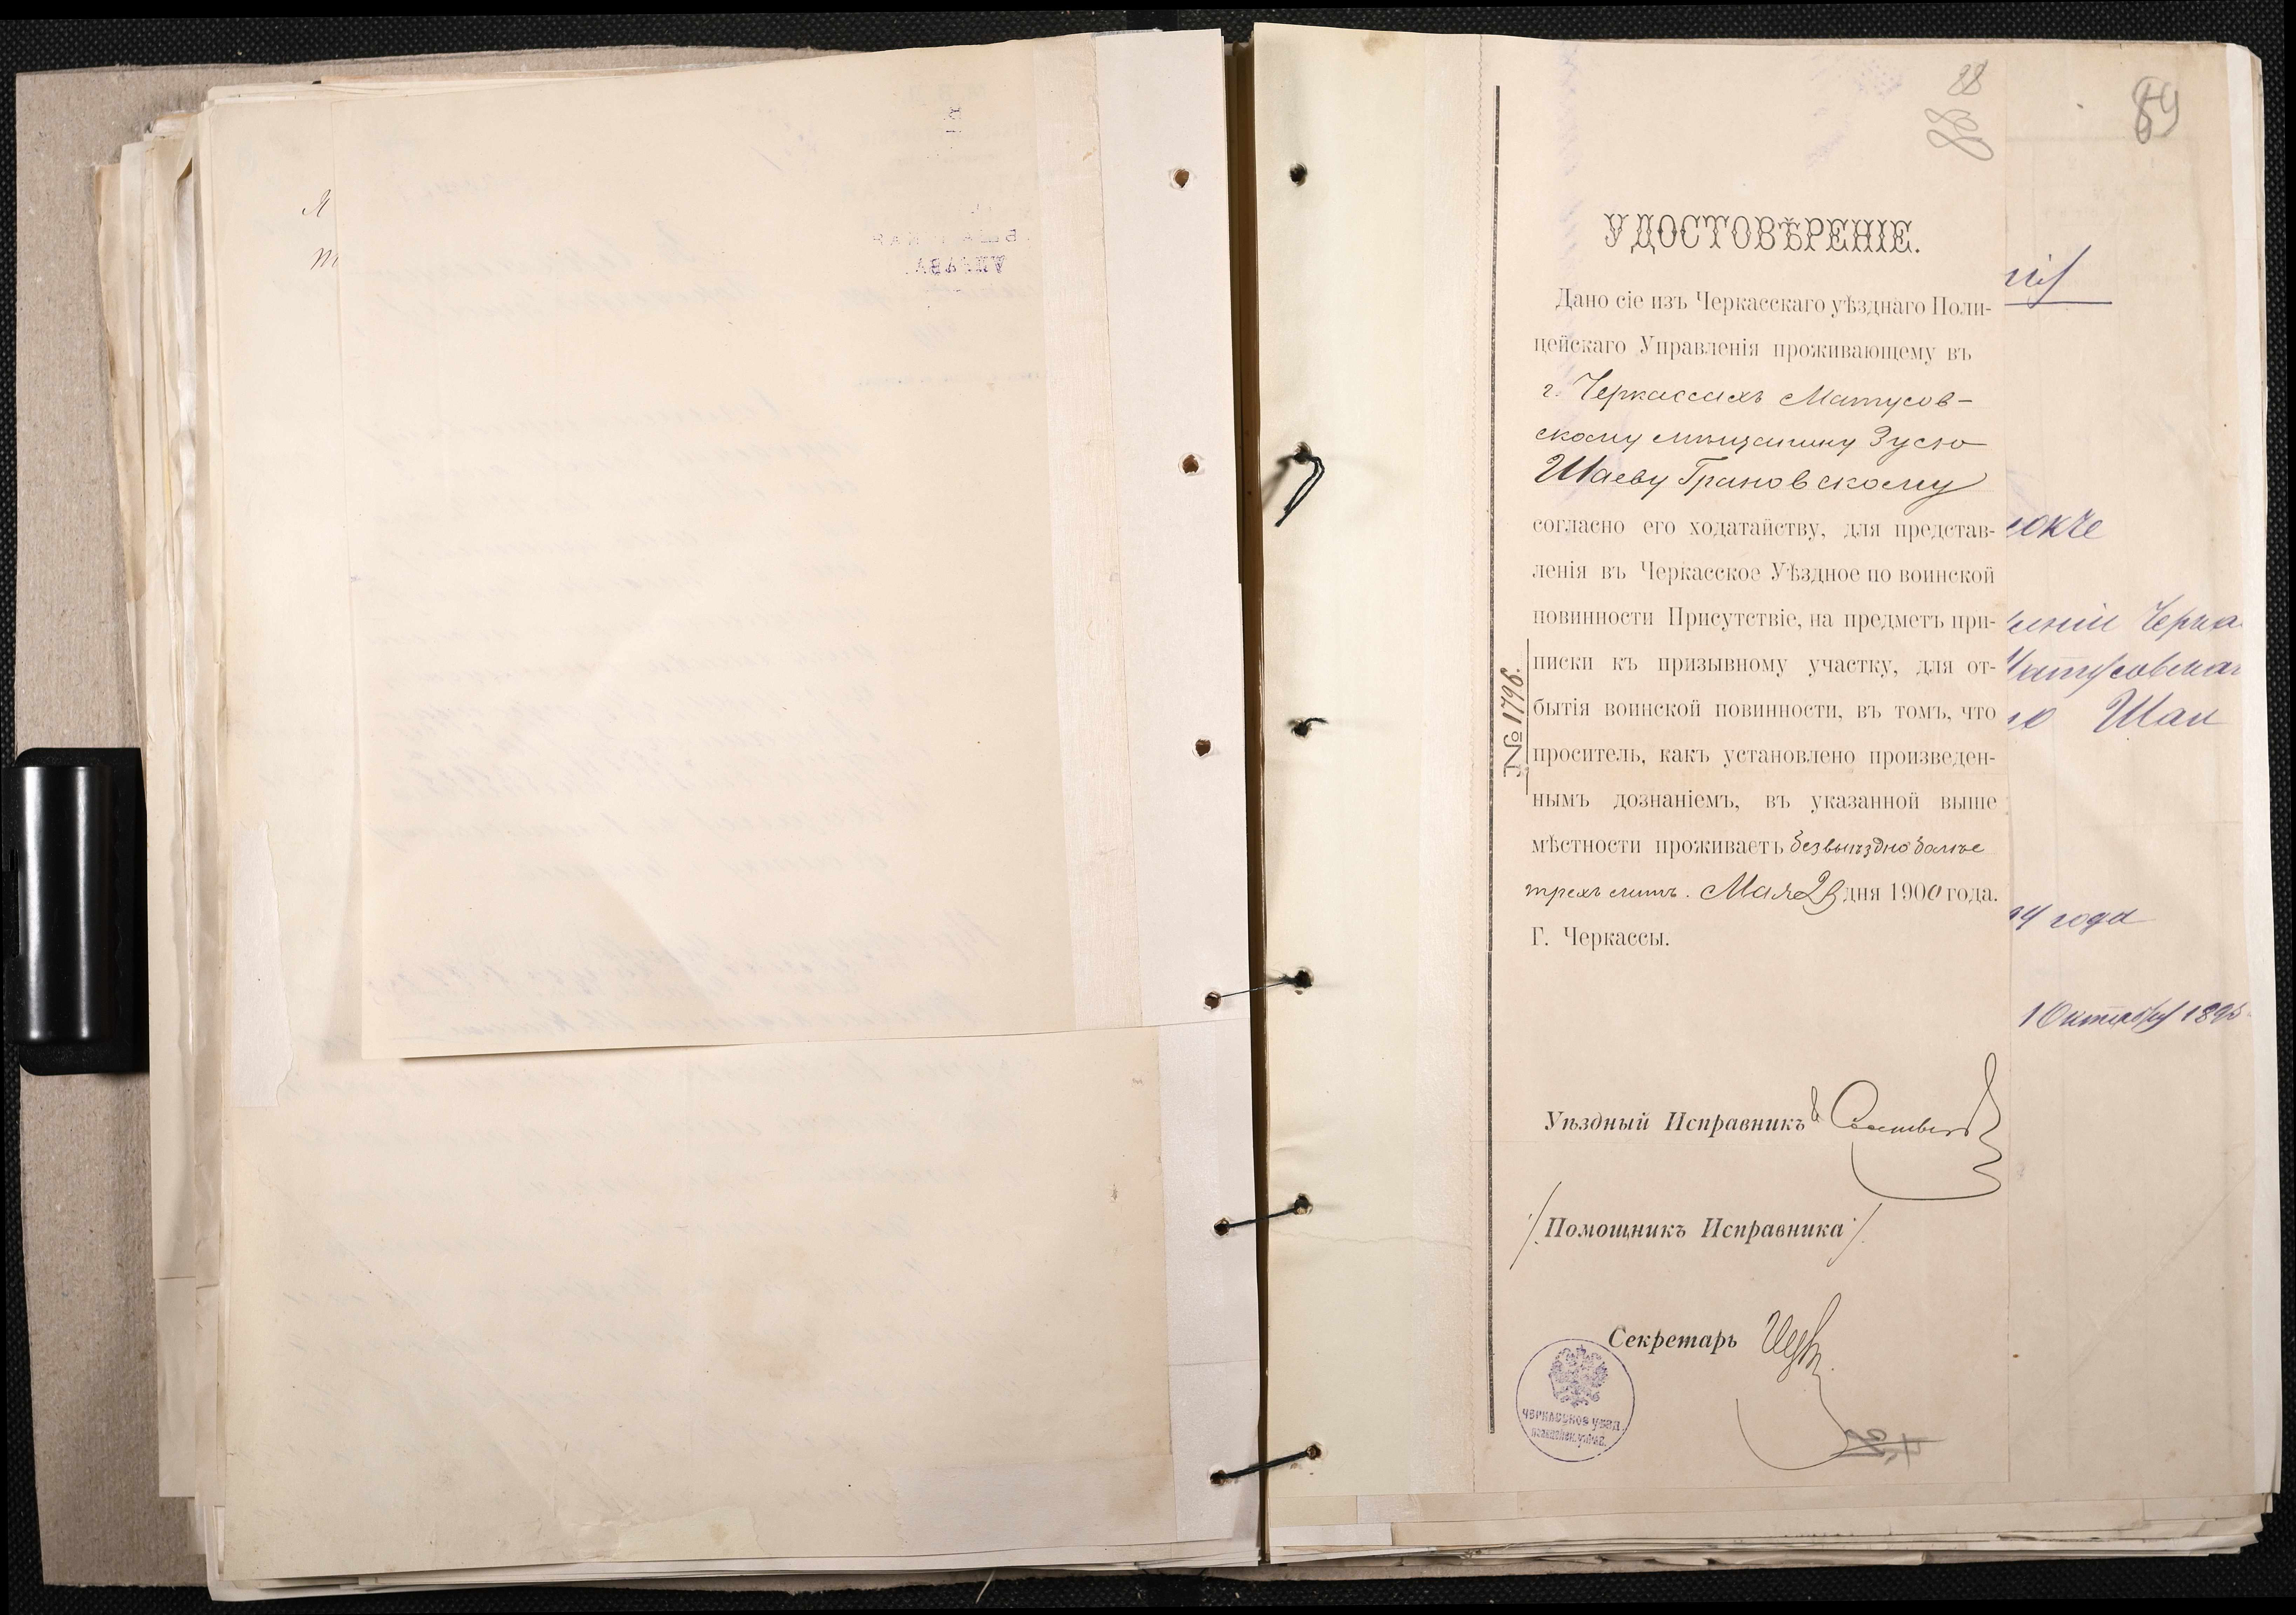 88
88
89
УДОСТОВѢРЕНІЕ.
Дано сіе изъ Черкасскаго уѣзднаго Поли-
цейскаго Управленія проживающему въ
г. Черкассахъ Матусов-
скому мѣщанину Зусю
Шаеву Грановскому
согласно его ходатайству, для представ-
ленія въ Черкасское Уѣздное по воинской
повинности Присутствіе, на предметъ при-
писки къ призывному участку, для от-
бытія воинской повинности, въ томъ, что
проситель, какъ установлено произведен-
нымъ дознаніемъ, въ указанной выше
мѣстности проживаетъ безвыѣздно болѣе
трехъ лѣтъ. Мая 29 дня 1900 года.
Г. Черкассы.
№ 1796.
Уѣздный Исправникъ
/Помощникъ Исправника/
Секретарь
ЧЕРКАССКОЕ УѢЗД.
полицейск. управ.
Шаи
года
1 Октября 189
Я